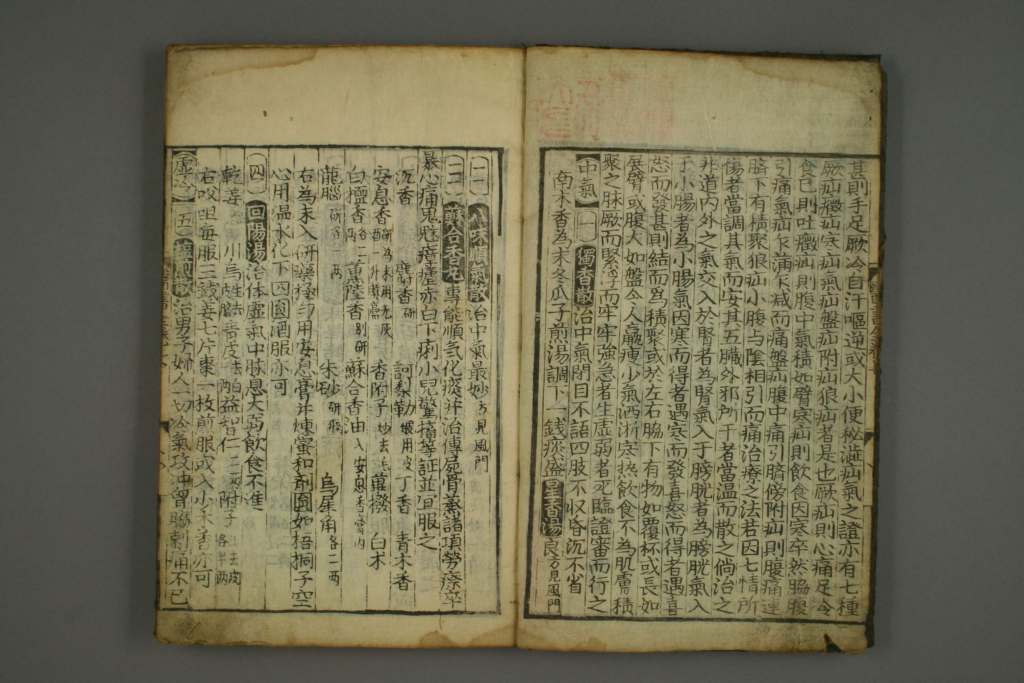 甚則手足厥冷自汗嘔逆或大小便秘澁疝氣之證亦有七種
厥疝癥疝寒疝氣疝盤疝附疝狼疝者是也厥疝則心痛足冷
食已則吐癥疝則腹中氣積如臂寒疝則飲食因寒卒然脇腹
引痛氣疝乍滿乍减而痛盤疝腹中痛引臍傍附疝則腹痛連
臍下有積聚狼疝小腹与陰相引而痛治療之法若因七情所
傷者當調其氣而安其五臟外邪所干者當温而散之倘治之
非道内外之氣交入於腎者為腎氣入于膀胱者為膀胱氣入
于小腸者為小腸氣因寒而得者遇寒而發喜怒而得者遇喜
怒而發甚則結而為積聚或於左右脇下有物如覆杯或長如
展臂或腹大如盤令人羸瘦少氣洒淅寒熱飲食不為肌膚積
聚之脉厥而緊浮而牢牢強急者生虛弱者死臨證審而行之
中氣 一 獨香散 治中氣閉目不語四肢不収昏沉不省
南木香為末冬瓜子煎湯調下一錢痰盛星香湯良方見風門
二 八味順氣散 治中氣最妙方見風門
三 蘇合香丸 專能順氣化痰并治傳屍骨蒸諸項勞瘵卒
暴心痛鬼魅瘧疾赤白下痢小兒驚搐等証並宜服之
沉香 麝香研 訶梨勒煨用皮 丁香 青木香
安息香 香附子炒去毛 蓽撥 白朮
白檀香各二兩 薰陸香别研 蘇合香油入安息香膏内
龍腦研各一兩 朱砂研飛 烏犀角各二两
右為末入研藥極匀用安息膏并煉蜜和劑圓如梧桐子空
心用温水化下四圓酒服亦可
四 回陽湯 治体虛氣中脉息大弱飲食不進
乾姜 川烏 青皮去白 益智仁二兩 附子去皮
右㕮咀每服三錢姜七片棗一枚煎服或入少木香亦可
虛冷 五 散治男子婦人一切冷氣攻冲胷脇刺痛不已